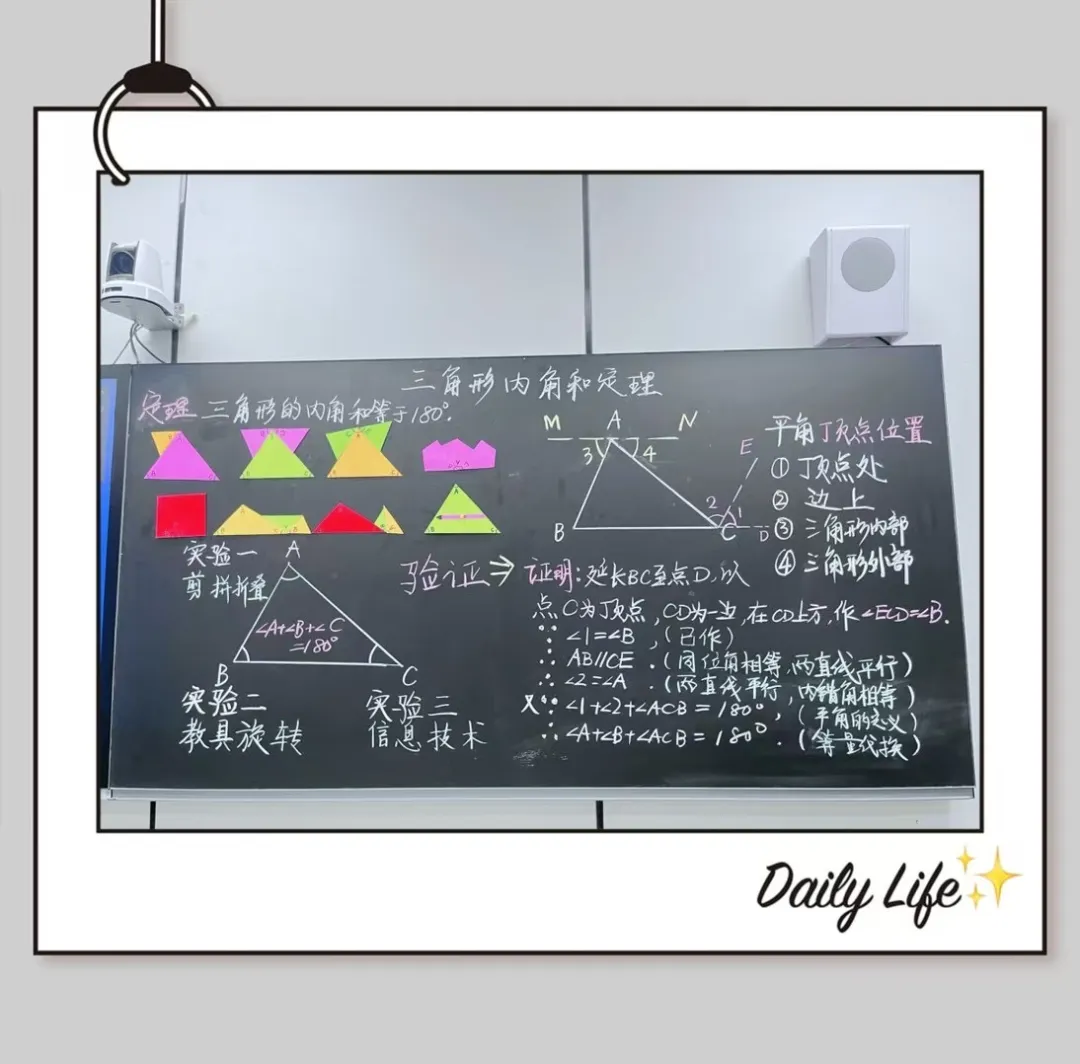 三角形内角和定理
定理 三角形的内角和等于180°.
实验一
剪拼折叠
A
∠A+∠B+∠C
=180°
B
C
实验二
教具旋转
实验三
信息技术
验证⇒
M A N
3 4
E
2 1
B C D
平角顶点位置
① 顶点处
② 边上
③ 三角形内部
④ 三角形外部
证明:延长BC至点D,以
点C为顶点,CD为一边,在CD上方,作∠ECD=∠B.
∵ ∠1=∠B,(已作)
∴ AB//CE.(同位角相等,两直线平行)
∴ ∠2=∠A.(两直线平行,内错角相等)
又∵ ∠1+∠2+∠ACB=180°,(平角的定义)
∴ ∠A+∠B+∠ACB=180°.(等量代换)
Daily Life